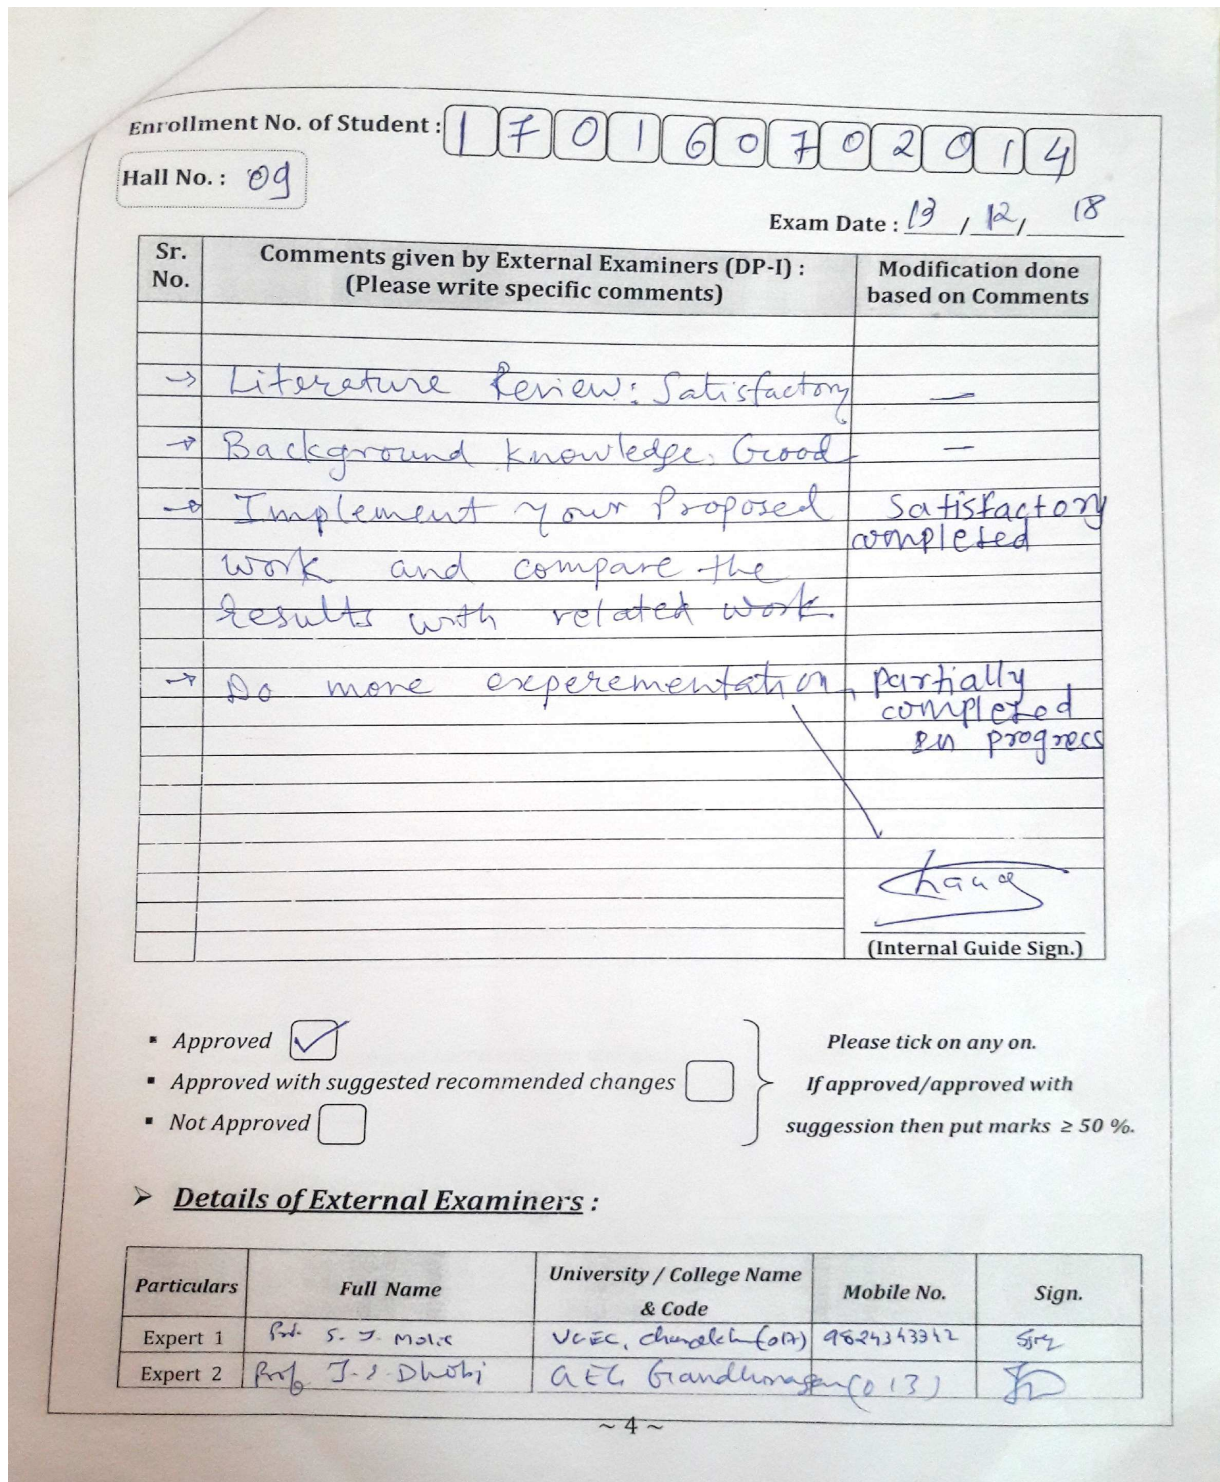 Enrollment No. of Student : 1 7 0 1 6 0 7 0 2 0 1 4
Hall No. : 09
Exam Date : 13 / 12 / 18
Sr. No. Comments given by External Examiners (DP-I) : (Please write specific comments) Modification done based on Comments
→ Literature Review: Satisfactory —
→ Background Knowledge: Good —
→ Implement your Proposed Satisfactory
completed
work and compare the
results with related work.
→ Do more experementation, partially
completed
in progress
(Internal Guide Sign.)
▪ Approved ✓ Please tick on any on.
▪ Approved with suggested recommended changes If approved/approved with
▪ Not Approved suggession then put marks ≥ 50 %.
➢ Details of External Examiners :
Particulars Full Name University / College Name & Code Mobile No. Sign.
Expert 1 Prof. S. J. VGEC, (017) 9824343342
Expert 2 Prof J. S. Dhobi GEC Gandhinagar (013)
~ 4 ~